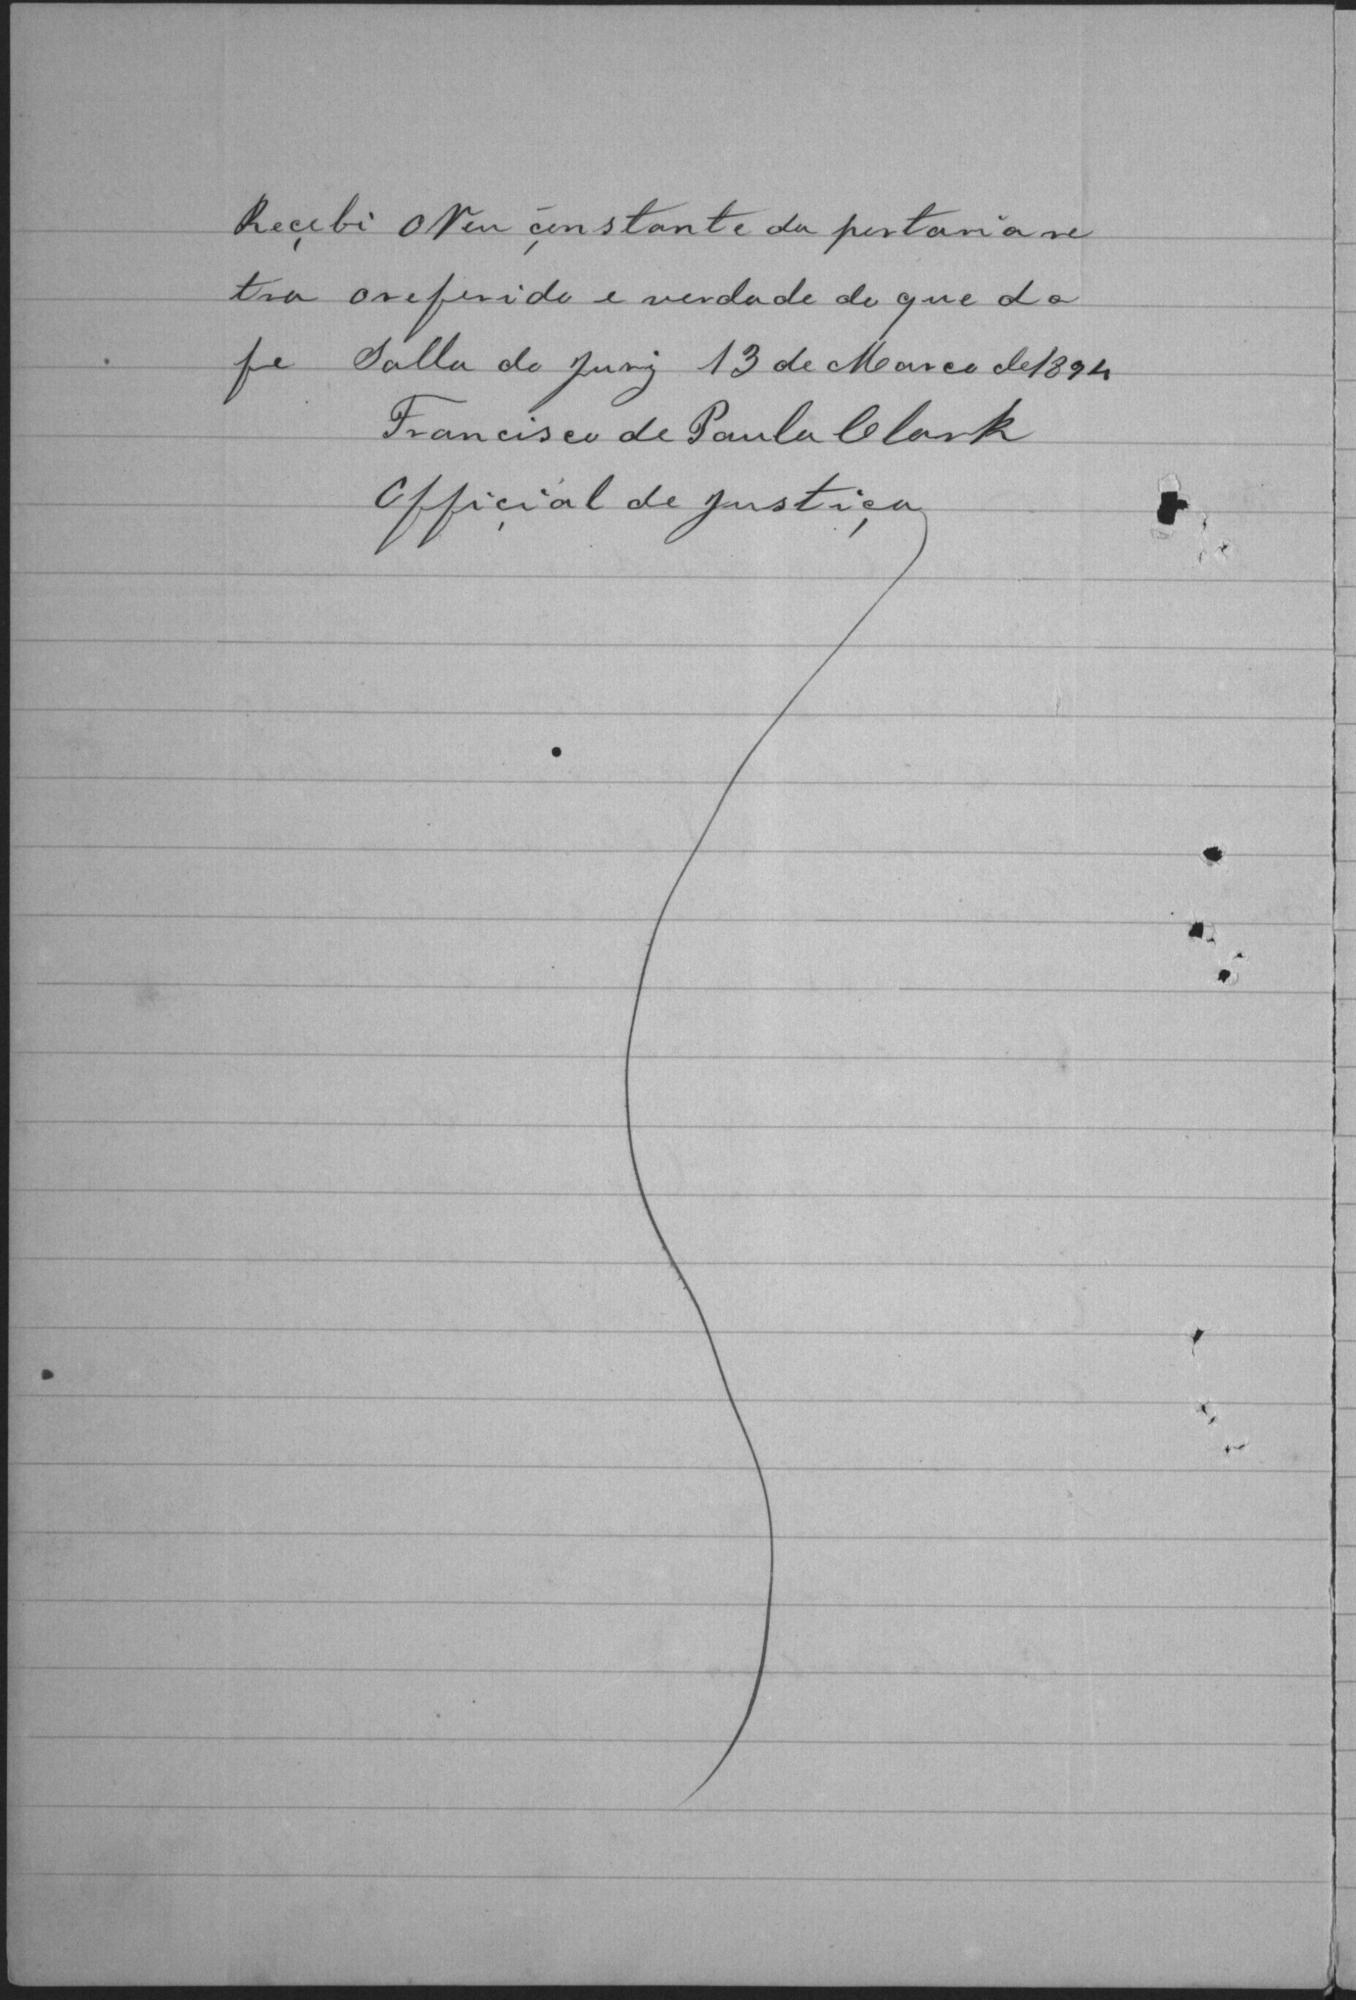 Reçebi o Reu çonstante da portaria re
tra o referido e verdade do que do
fe Salla do Jury 13 de Março de 1894
Francisco de Paula Clark
Offiçial de Justiça